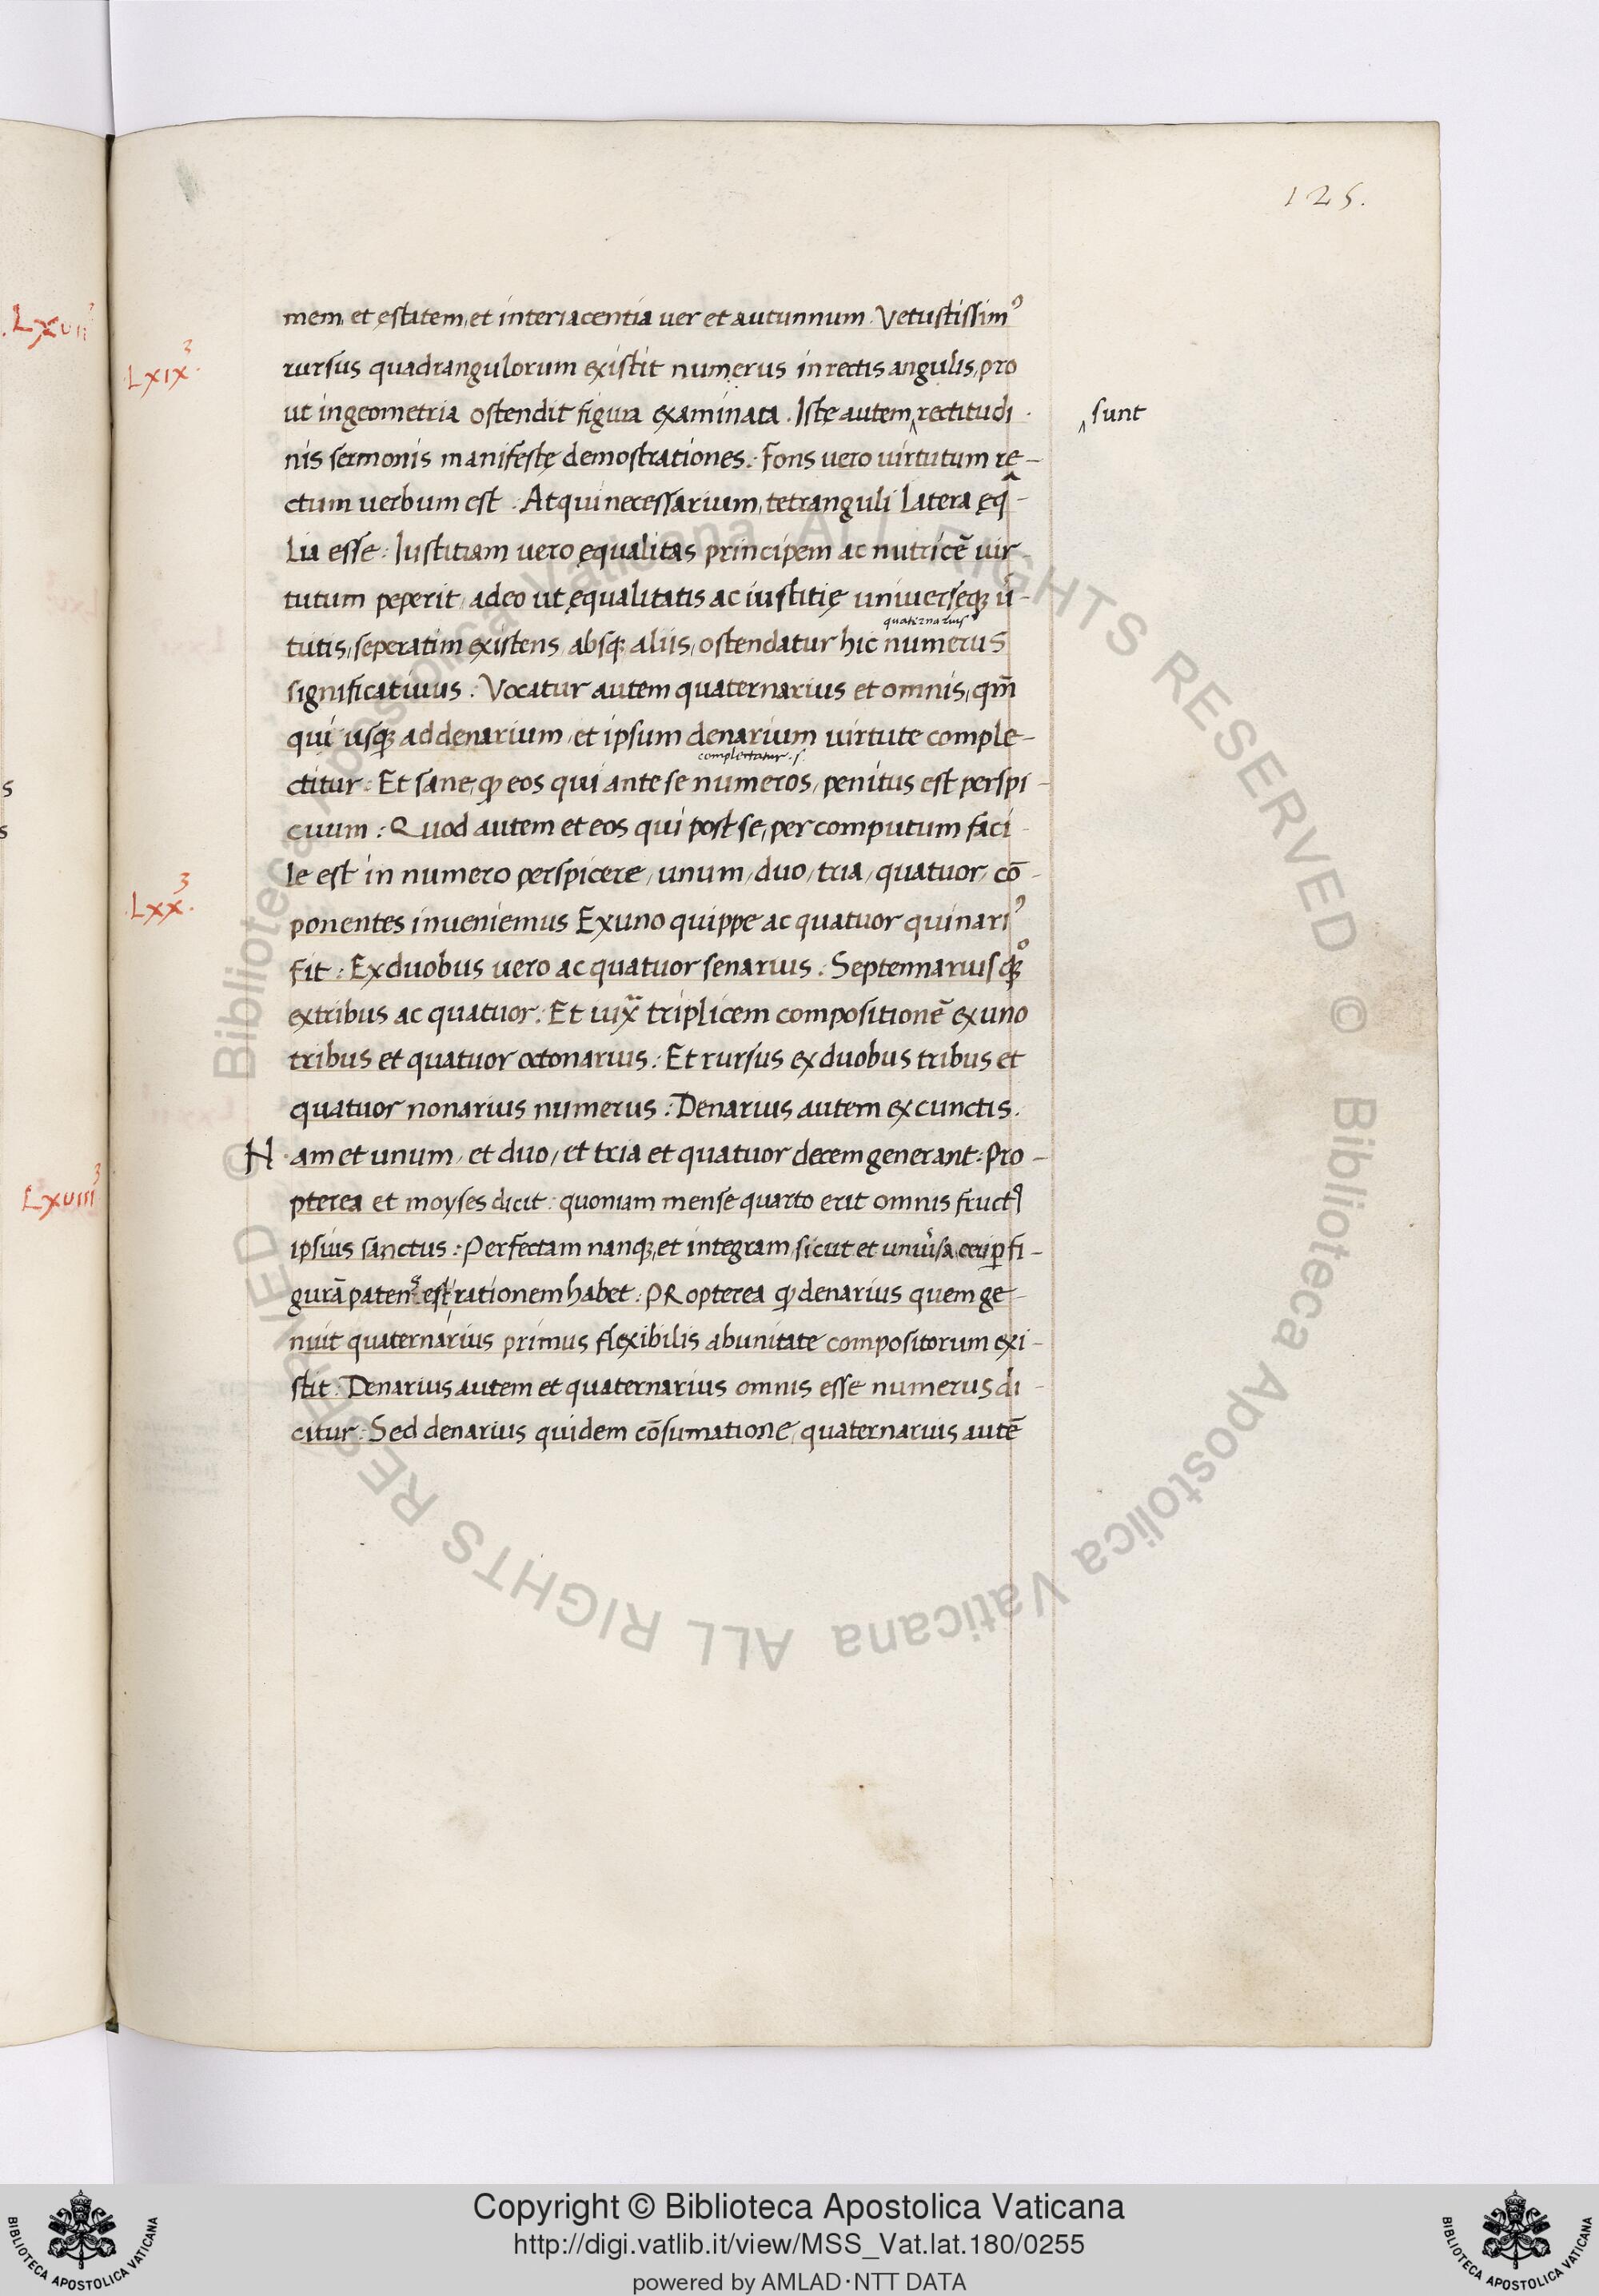 125.
mem, et ęstatem, et interiacentia uer et autunnum. Vetustissimꝰ
.LXIX.³
rursus quadrangulorum existit numerus in rectis angulis, pro
ut in geometria ostendit figura examinata. Istę autem ‸ rectitudi-
‸ sunt
nis sermonis manifestę demostrationes: Fons uero uirtutum re-
ctum uerbum est. Atqui necessarium, tetranguli latera ęq̂-
lia esse: Iustitiam uero ęqualitas principem ac nutricē uir-
tutum peperit, adeo ut ęqualitatis ac iustitię uniuersęqꝫ ũ-
quaternarius
tutis, seperatim existens, absqꝫ aliis, ostendatur hic numerus
significatiuus: Vocatur autem quaternarius et omnis, qm̄
qui usqꝫ ad denarium, et ipsum denarium uirtute comple-
complectatur .s.
ctitur: Et sane, ꝙ eos qui ante se numeros, penitus est perspi-
cuum: Quod autem et eos qui post se, per computum faci-
le est in numero perspicere, unum, duo, tria, quatuor, cō-
.LXX.³
ponentes inueniemus Ex uno quippe ac quatuor quinariꝰ
fit: Ex duobus uero ac quatuor senarius: Septennarius qꝫͦ
ex tribus ac quatuor: Et iuxᵃ triplicem compositionē ex uno
tribus et quatuor octonarius: Et rursus ex duobus tribus et
quatuor nonarius numerus: Denarius autem ex cunctis.
Nam et unum, et duo, et tria et quatuor decem generant: Pro-
pterea et moyses dicit: quoniam mense quarto erit omnis fructꝰ
ipsius sanctus: Perfectam nanqꝫ, et integram, sicut et uniũsa, ꝑ fi-
gurā est rationem habet: PRopterea ꝙ denarius quem ge-
nuit quaternarius primus flexibilis ab unitate compositorum exi-
stit: Denarius autem et quaternarius omnis esse numerus di-
citur: Sed denarius quidem cōsumatione, quaternarius autē
.LXVII³
LXVIII³
s
s
© Biblioteca Apostolica Vaticana ALL RIGHTS RESERVED © Biblioteca Apostolica Vaticana ALL RIGHTS RESERVED
Copyright © Biblioteca Apostolica Vaticana
http://digi.vatlib.it/view/MSS_Vat.lat.180/0255
powered by AMLAD·NTT DATA
BIBLIOTECA APOSTOLICA VATICANA
BIBLIOTECA APOSTOLICA VATICANA